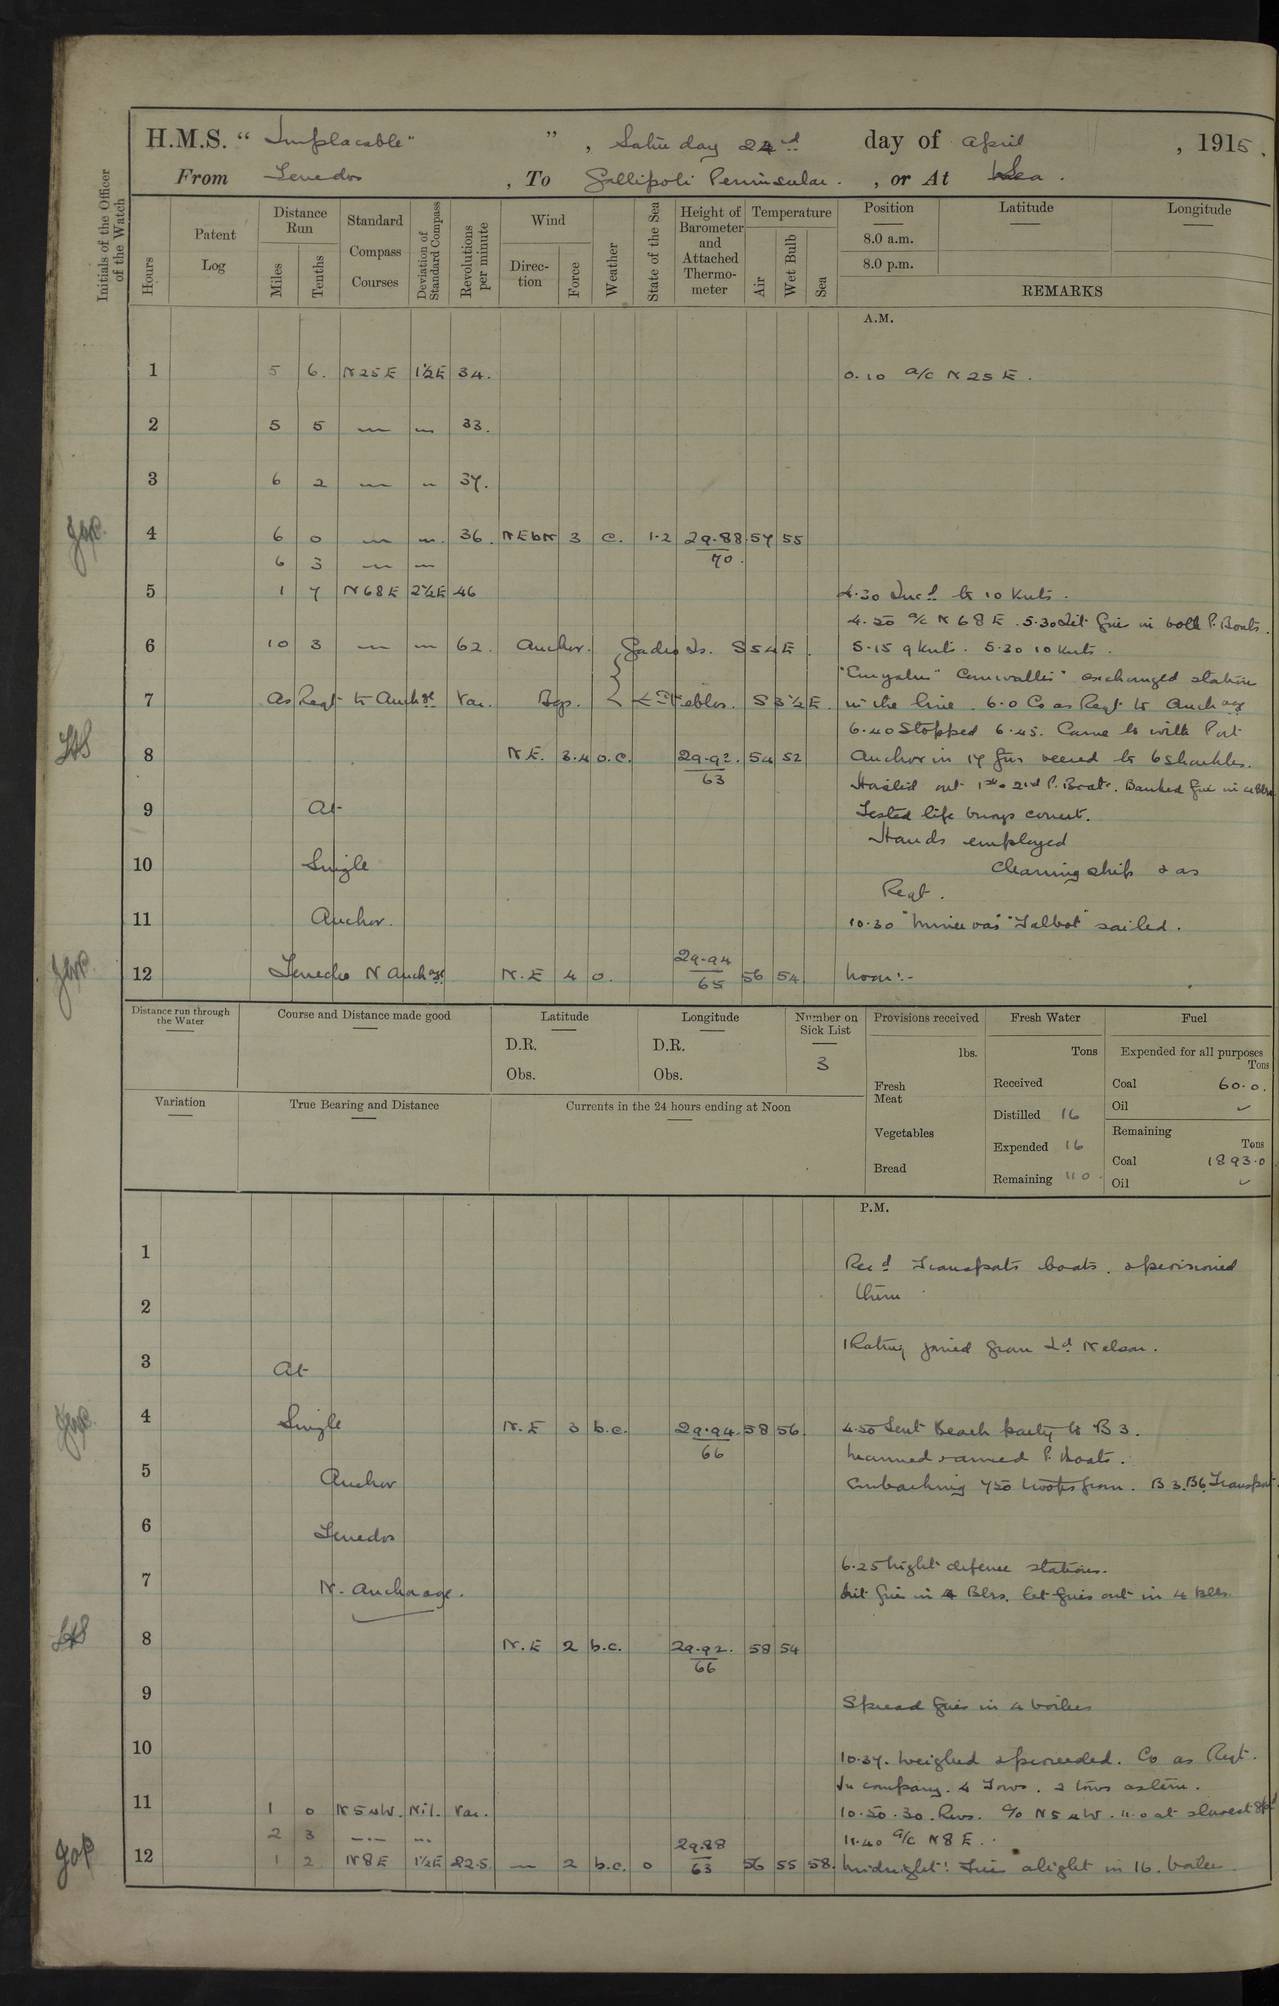 H.M.S. "Implacable", Saturday 24th day of April, 1915.
From Tenedos, To Gallipoli Peninsular., or At Sea.
Initials of the Officer of the Watch
Hours
Patent Log
Distance Run
Miles
Tenths
Standard Compass Courses
Deviation of Standard Compass
Revolutions per minute
Wind
Direction
Force
Weather
State of the Sea
Height of Barometer and Attached Thermometer
Temperature
Air
Wet Bulb
Sea
Position
Latitude
Longitude
8.0 a.m.
8.0 p.m.
REMARKS
A.M.
1 5 6. N25E 1½E 34. 0.10 a/c N25E.
2 5 5 〃 〃 33.
3 6 2 〃 〃 37.
4 6 0 〃 〃 36. NEbN 3 c. 1.2 29.88/70. 57 55
6 3 〃 〃
5 1 7 N68E 2½E 46 4.30 Incd to 10 Knts.
4.50 a/c N68E. 5.30 Lit fires in both P. Boats.
6 10 3 〃 〃 62. Anchor. Is. S54E. 5.15 9 Knts. 5.20 10 Knts.
"Euryalus" "Cornwallis" exchanged station
7 As Reqt to Anchge Var. Bgs. S3½E. in the line. 6.0 Co as Reqt to Anchage
6.40 Stopped 6.45. Came to with Port
8 N.E. 3.4 o.c. 29.92./63 54 52 Anchor in 17 fms veered to 6 shackles.
Hoisted out 1st & 2nd P. Boats. Banked fires in 4 Blrs
9 At Tested life buoys correct.
Hands employed
10 Single cleaning ship & as
Reqt.
11 Anchor. 10.30 "Minerva" "Talbot" sailed.
12 Tenedos N Anchge. N.E 4 o. 29.94/65 56 54 Noon:-
Distance run through the Water
Course and Distance made good
Latitude
D.R.
Obs.
Longitude
D.R.
Obs.
Number on Sick List
3
Provisions received
lbs.
Fresh Meat
Vegetables
Bread
Fresh Water
Tons
Received
Distilled 16
Expended 16
Remaining 110
Fuel
Expended for all purposes
Tons
Coal 60.0.
Oil ✓
Remaining
Tons
Coal 1893.0
Oil ✓
Variation
True Bearing and Distance
Currents in the 24 hours ending at Noon
P.M.
1 Recd Transports boats. & provisioned
2 them
3 At 1 Rating joined from Ld Nelson.
4 Single N.E 3 b.c. 29.94./66 58 56. 4.50 Sent Beach party to B3.
Manned & armed P. Boats.
5 Anchor Embarking 750 troops from. B3. B6. Transport.
6 Tenedos
6.25 Night defence stations.
7 N. Anchorage. Lit fires in 4 Blrs. let fires out in 4 Blrs.
8 N.E 2 b.c. 29.92./66 58 54
9 Spread fires in 4 boilers
10 10.37. Weighed & proceeded. Co as Reqt.
In company. 4 Tows. 2 tows astern.
11 1 0 N54W. Nil. Var. 10.50. 30. Revs. a/c N54W. 11.0 at slowest spd
2 3 〃 〃 11.40 a/c N8E.
12 1 2 N8E 1½E 22.5 — 2 b.c. 0 29.88/63 56 55 58. Midnight: Fires alight in 16. boilers